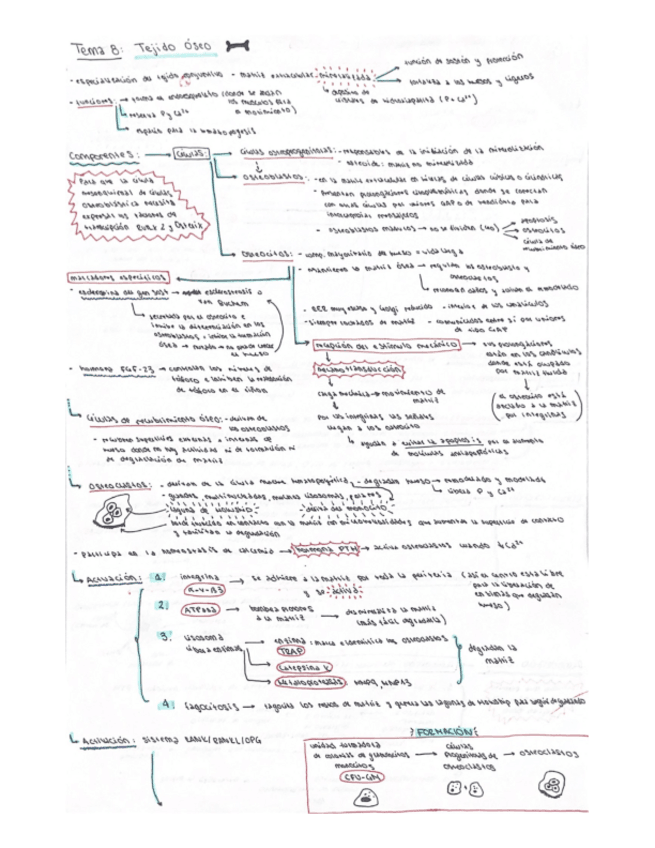 Tema 8: Tejido Óseo
- especialización del tejido conjuntivo - matriz extracelular mineralizada
función de sostén y protección
fortaleza a los huesos y
cristales de hidroxiapatita (P + Ca²⁺)
- Funciones: → forma el endoesqueleto (donde se
los músculos para
el movimiento)
→ reserva P y Ca²⁺
→ espacio para la hematopoyesis
Componentes: → Células:
Células osteoprogenitoras: - responsables de la iniciación de la mineralización
- osteoide: matriz no mineralizada
Para que la célula
mesenquimal
osteoblástica necesita
expresar los factores de
transcripción Runx 2 y Osterix
OSTEOBLASTOS: - en la matriz extracelular en hileras de células cúbicas o cilíndricas
- presentan prolongaciones citoplasmáticas donde se conectan
con otras células por uniones GAP o de hendidura para
intercambiar
- osteoblastos maduros → no se dividen (G0)
apoptosis
osteocitos
célula de
recubrimiento óseo
OSTEOCITOS: - comp. mayoritario de hueso = vida larga
- mantienen la matriz ósea → regulan los osteoblastos y
osteoclastos
marcadores específicos
- esclerostina del gen SOST → esclerosteosis o
Van Buchem
secretada por el osteocito e
inhibe la diferenciación en los
osteoblastos e inhibe la formación
ósea →
el hueso
- RER muy escaso y Golgi reducido
- siempre rodeados de matriz - comunicados entre sí por uniones
de tipo GAP
recepción del estímulo mecánico
sus prolongaciones
están en los canalículos
donde está ocupado
por
mecanotransducción
carga mecánica → movimiento de
matriz
por las integrinas las señales
llegan a los osteocitos
(el osteocito está
anclado a la matriz
por integrinas)
ayudan a evitar la apoptosis por el aumento
de moléculas antiapoptóticas
- hormona FGF-23 → controlan los niveles de
fósforo e inhiben la reabsorción
de fósforo en el riñón
Células de recubrimiento óseo: - derivan de
los osteoblastos
- recubren superficies externas e internas de
hueso donde no hay actividad ni de formación ni
de degradación de matriz
OSTEOCLASTOS: - derivan de la célula madre hematopoyética - degradan hueso → remodelado y modelado
→ libera P y Ca²⁺
- grandes, multinucleados, muchos lisosomas,
laguna de Howship
deriva del monocito
borde fruncido en contacto con la matriz con microvellosidades que aumentan la superficie de contacto
y facilitan la degradación
- participa en la homeostasis de calcemia → hormona PTH → activa osteoclastos cuando ↓Ca²⁺
Activación:
1. integrina → se adhiere a la matriz por toda la periferia (así el centro está libre
α-v-β3
y se activa
para la liberación de
enzimas que degradan
hueso)
2. ATPasa → bombea protones → desmineraliza la matriz
a la matriz
(más fácil degradarla)
3. lisosoma → enzima: marca e identifica los osteoclastos
libera enzimas
TRAP
Catepsina K
Metaloproteasas: MMP9, MMP13
degradan la
matriz
4. Fagocitosis → fagocita los restos de matriz y quedan las lagunas de Howship para seguir degradando
Activación: Sistema RANK/RANKL/OPG
FORMACIÓN
unidad formadora
de colonias de granulocitos
monocitos
CFU-GM
→ células
progenitoras de
osteoclastos
→ osteoclastos